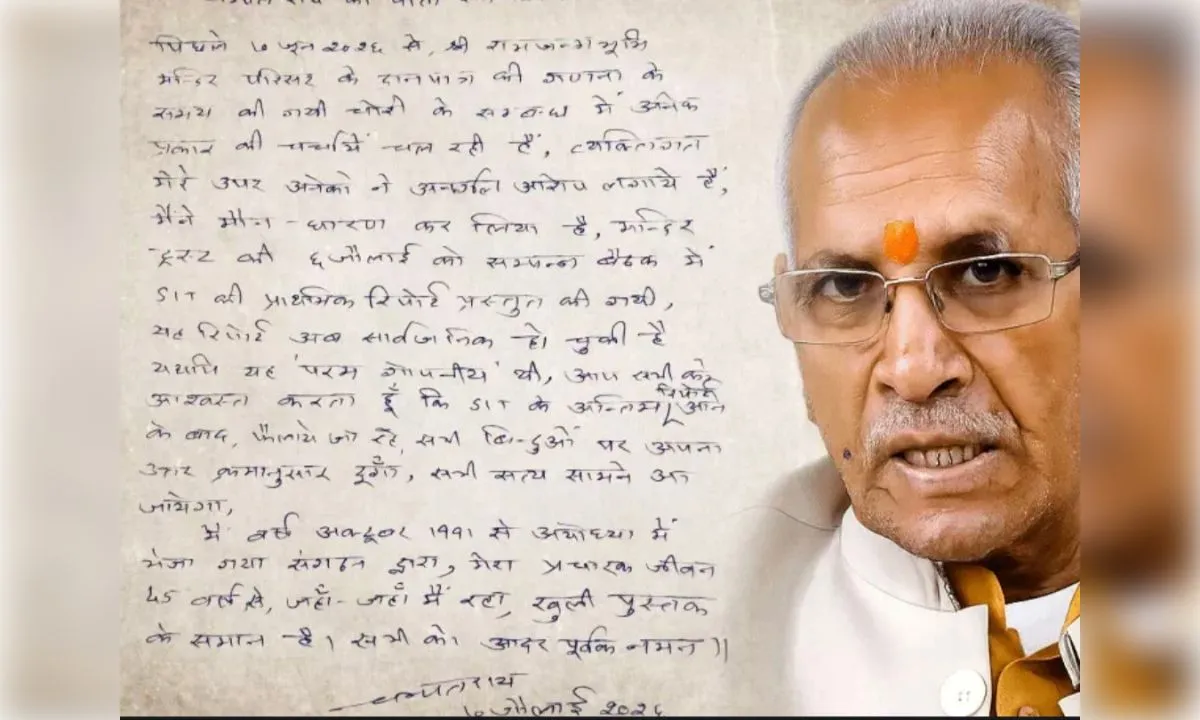 पिछले ७ जून २०२६ से, श्री रामजन्मभूमि
मन्दिर परिसर के दानपात्र की गणना के
समय की गयी चोरी के सम्बन्ध में अनेक
प्रकार की चर्चायें चल रही हैं, व्यक्तिगत
मेरे उपर अनेकों ने अनर्गल आरोप लगाये हैं,
मैंने मौन-धारण कर लिया है, मन्दिर
ट्रस्ट की ६ जौलाई को सम्पन्न बैठक में
SIT की प्राथमिक रिपोर्ट प्रस्तुत की गयी,
यह रिपोर्ट अब सार्वजनिक हो चुकी है
यद्यपि यह 'परम गोपनीय' थी, आप सभी को
आश्वस्त करता हूँ कि SIT के अन्तिम रिपोर्ट आने
के बाद, फैलाये जा रहे, सभी बिन्दुओं पर अपना
उत्तर क्रमानुसार दूँगा, सभी सत्य सामने आ
जायेगा,
मैं वर्ष अक्टूबर 1991 से अयोध्या में
भेजा गया संगठन द्वारा, मेरा प्रचारक जीवन
45 वर्ष से, जहाँ-जहाँ मैं रहा, खुली पुस्तक
के समान है। सभी को आदर पूर्वक नमन।।
चम्पतराय
७ जौलाई २०२६